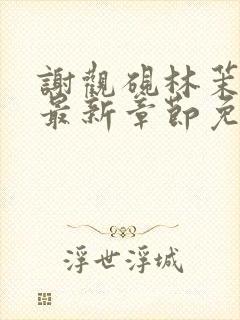 謝觀硯林茉
最新章節免
浮世浮城